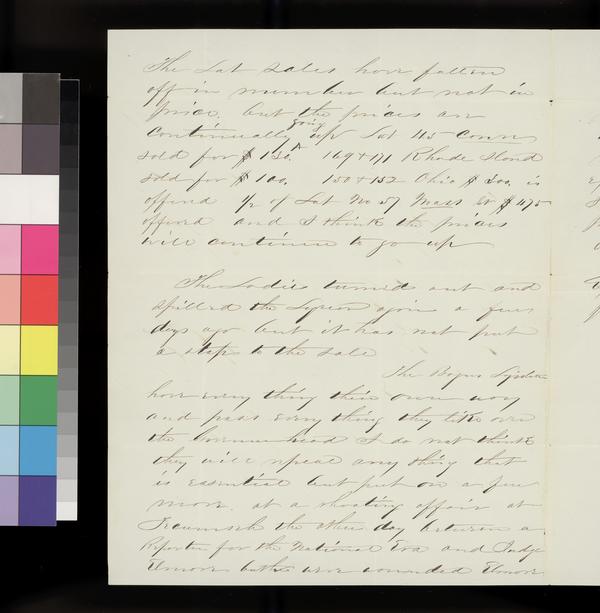 The Lot sales have fallen
off in number but not in
price. but the prices are
continually going up Lot 45 Conn
sold for $ 130. 169 & 171 Rhode Iland
sold for $ 100. 150 & 152 Ohio $ 300. is
offerd 1/2 of Lot No 57 Mass St $ 475
offerd and I think the prices
will continue to go up
The Ladies turned out and
spilled the again a few
days ago but it has not put
a stop to the sale
The Bogus
have every thing their own way
and pass every thing they like over
the head I do not think
they will repeal any thing that
is essential but put on a few
more. at a shooting affair at
Tecumseh the other day between a
Reporter for the National Era and Judge
Elmore both were wounded Elmore